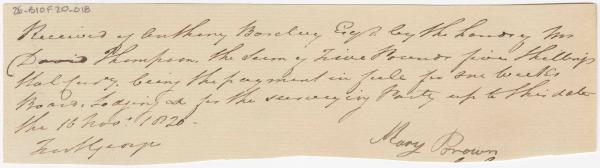 26-B10F20-018
Received of Anthony Barclay Esqr by the hands of Mr
David Thompson the Sum of Five Pounds five Shillings
Hal fury, being the payment in full for one week's
Board, Lodging & for the surveying Party up to this date
the 16 Novr 1820 -
Fort George
Mary Brown